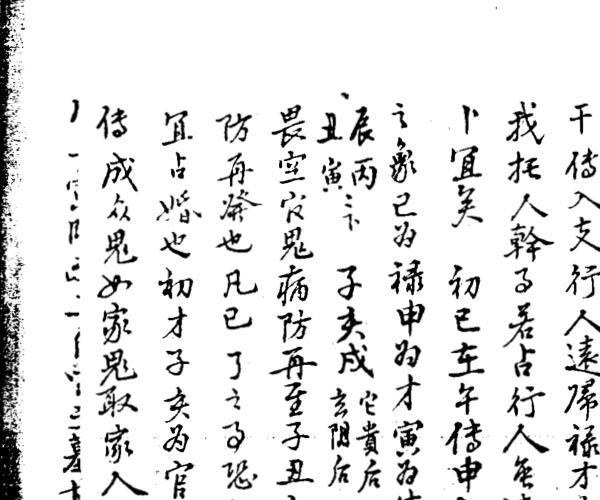 干傳入支行人遠歸祿才
我托人幹事若占行人無
卜宜矣 初巳在午傳申
之象巳为祿申为才寅为
辰丙 子亥戌 空貴后
丑寅 玄阴后
畏空官鬼病防再至子丑
防再發也凡已了之事恐
宜占婚也初才子亥为官
传成众鬼如家鬼取家人